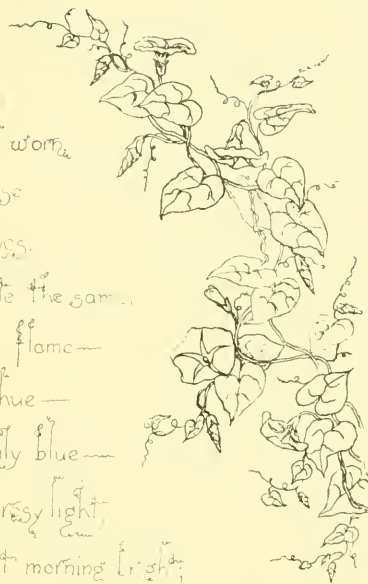 worn,
se
es.
te the sam
flame—
hue—
ly blue—
rosy light
t morning bright,